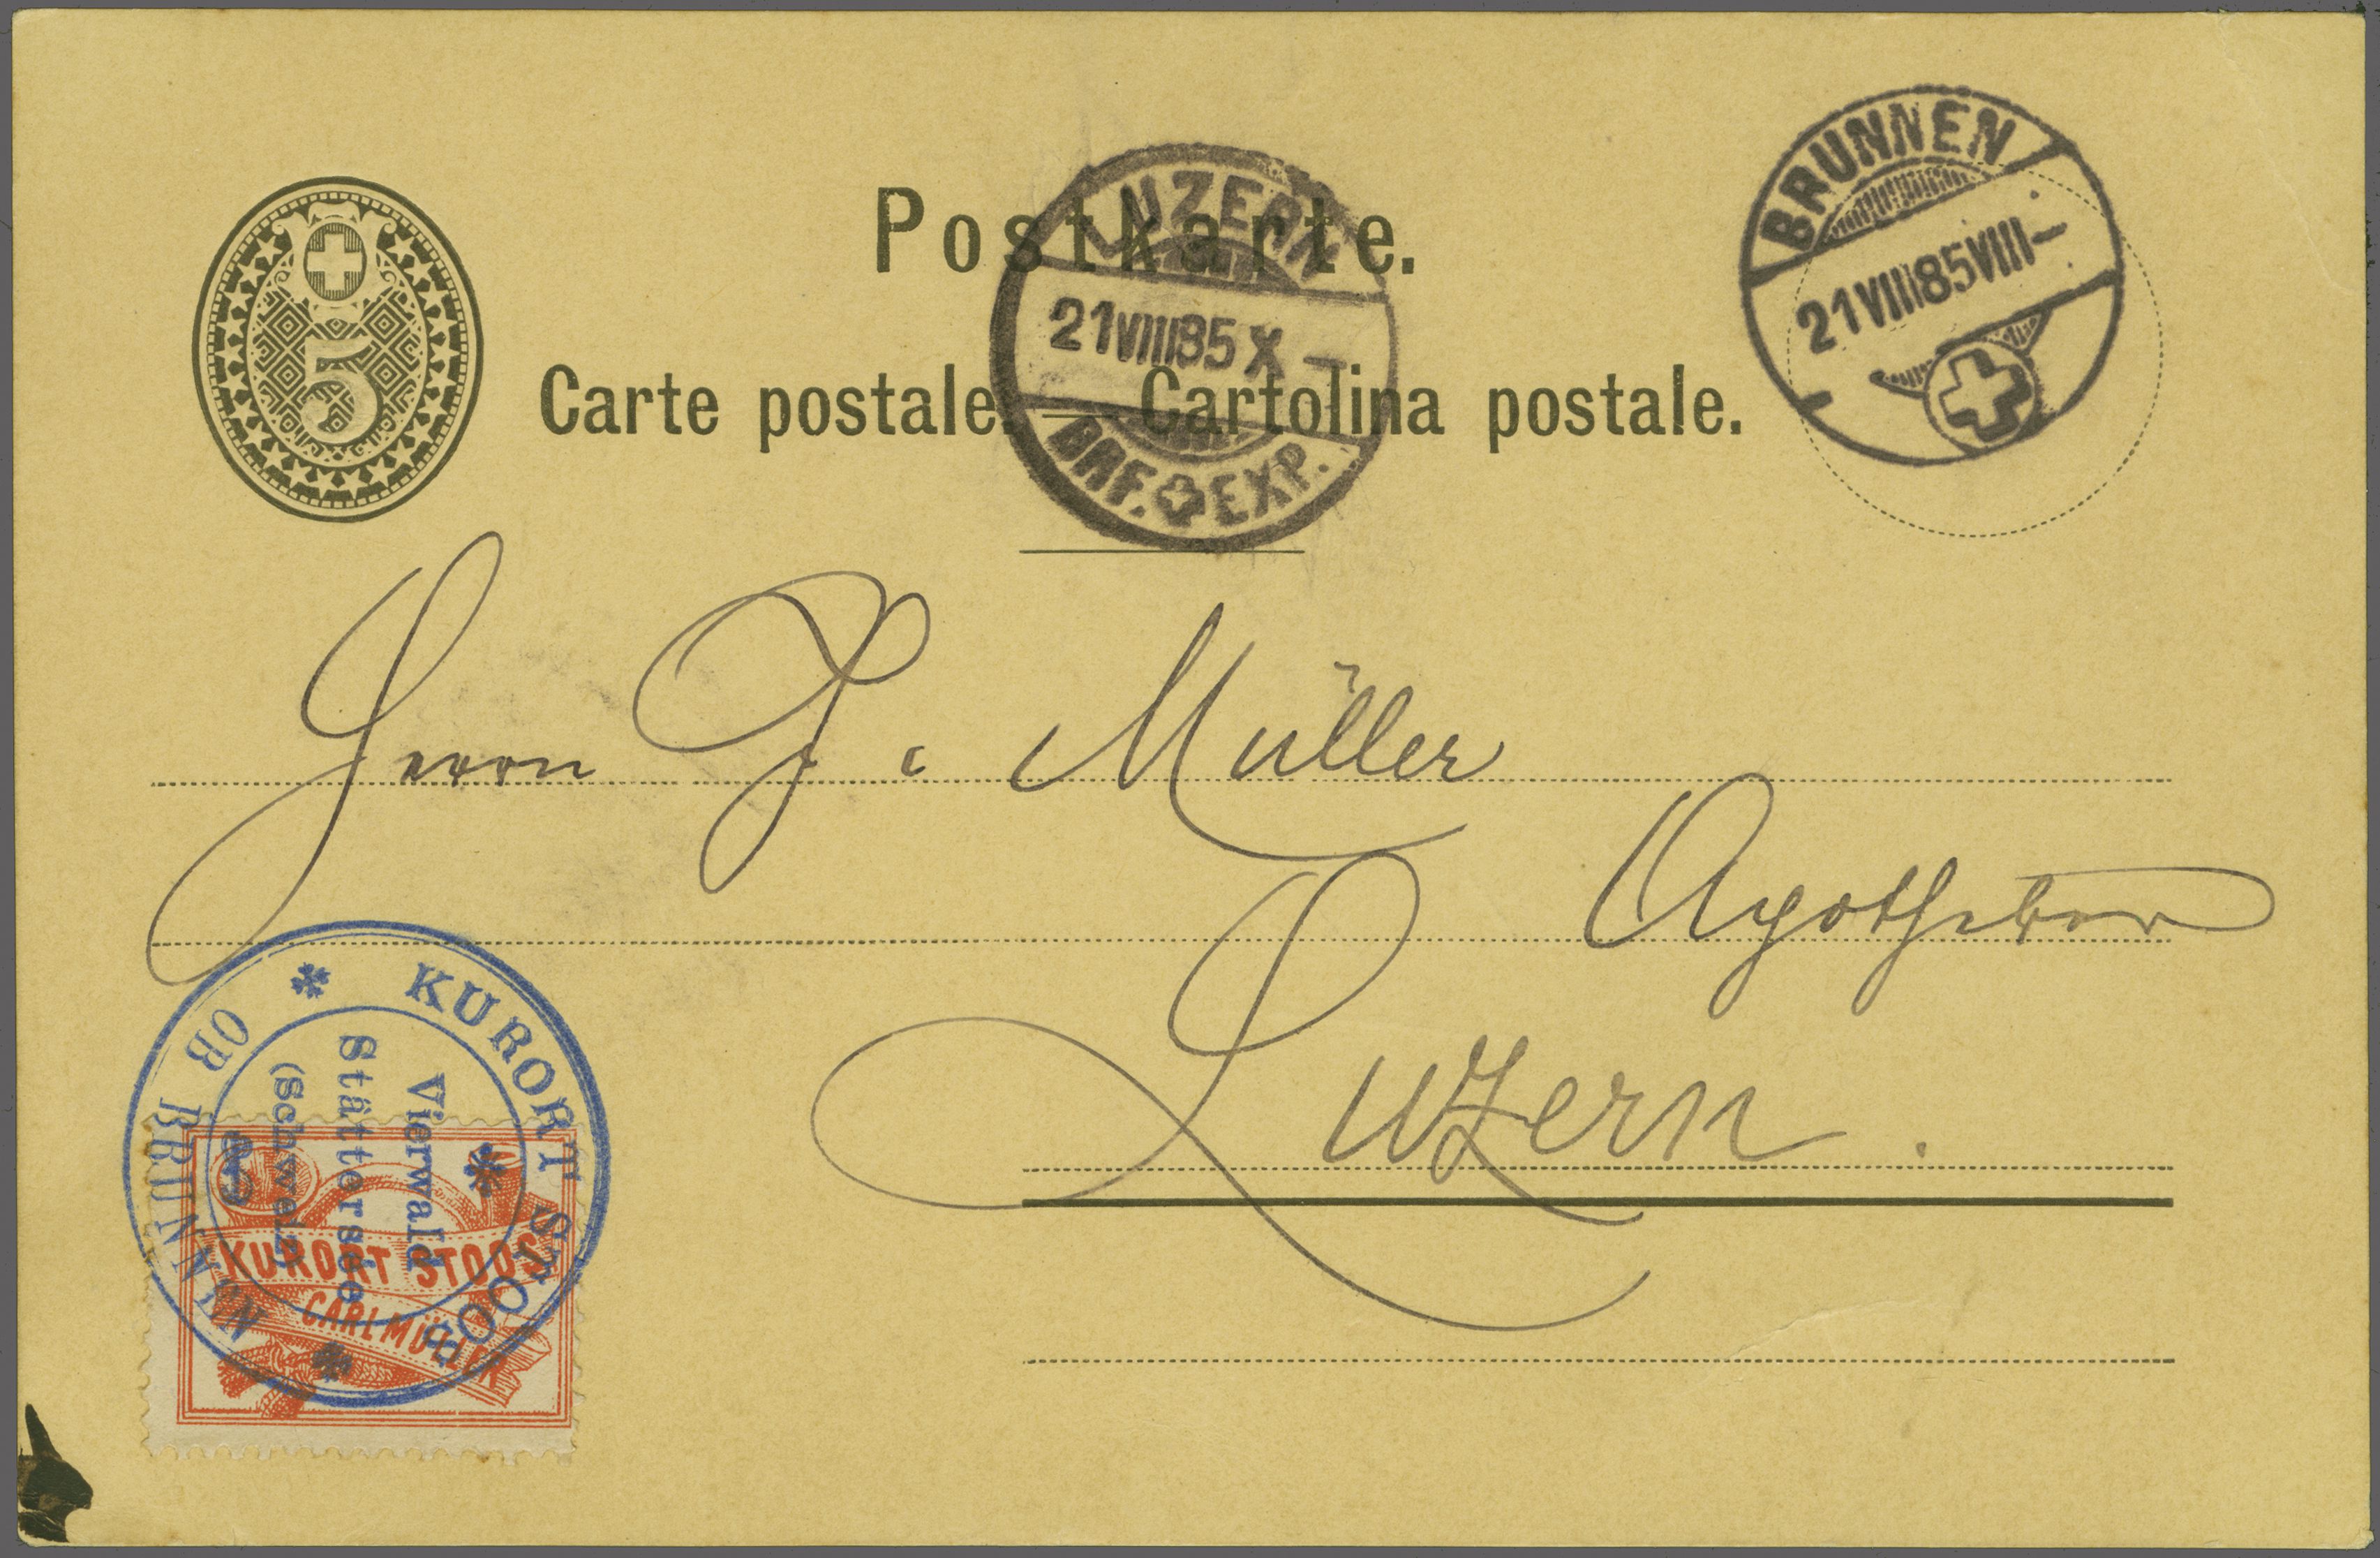 BRUNNEN
21 VIII 85 VIII –
Postkarte.
LUZERN
21 VIII 85 X –
BRF. EXP.
5
Carte postale. — Cartolina postale.
Herrn J. Müller
Apotheker
Luzern.
KURORT STOOS
OB BRUNNEN
Vierwald
Stättersee
(Schweiz)
KURORT STOOS
CARL MÜLLER